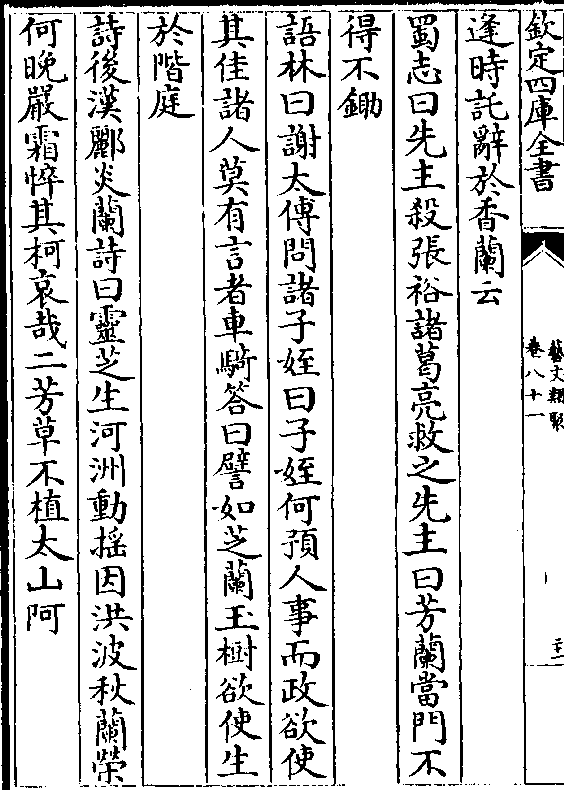 欽定四庫全書
藝文類聚
卷八十一
逢時託辭於香蘭云
蜀志曰先主殺張裕諸葛亮救之先主曰芳蘭當門不
得不鋤
語林曰謝太傅問諸子姪曰子姪何預人事而政欲使
其佳諸人莫有言者車騎答曰譬如芝蘭玉樹欲使生
於階庭
詩後漢酈炎蘭詩曰靈芝生河洲動揺因洪波秋蘭榮
何晚嚴霜悴其柯哀哉二芳草不植太山阿